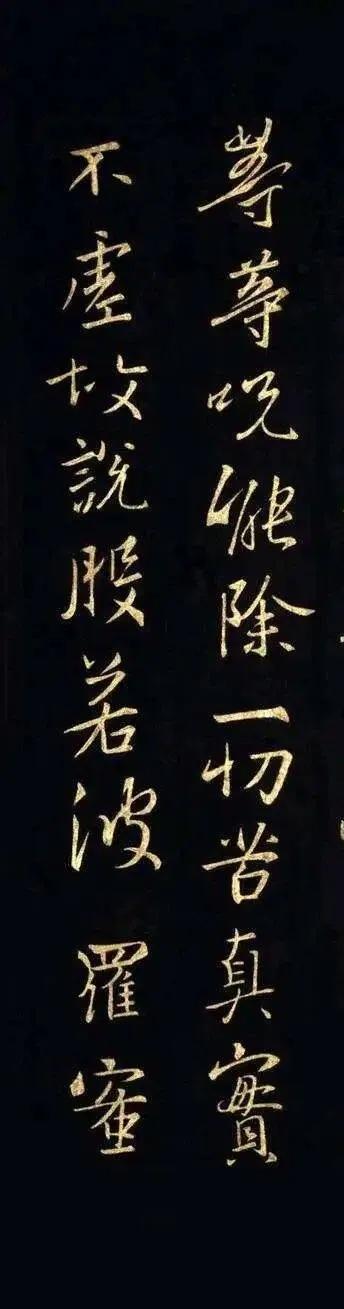 等等呪能除一切苦真實
不虛故說般若波羅蜜